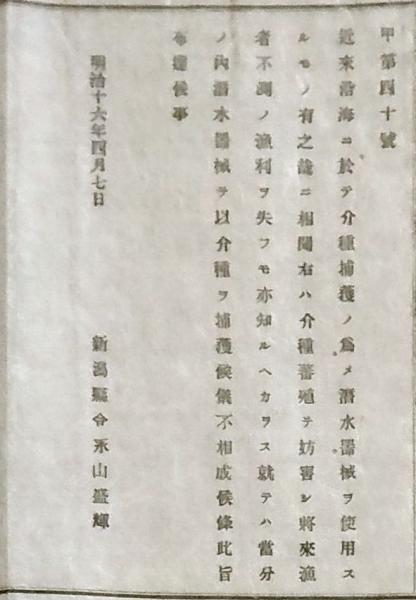 甲第四十號
近來沿海ニ於テ介種捕獲ノ爲メ潛水器械ヲ使用ス
ルモノ有之哉ニ相聞右ハ介種蕃殖ヲ妨害シ將來漁
者不測ノ漁利ヲ失フモ亦知ルヘカラス就テハ當分
ノ內潛水器械ヲ以介種ヲ捕獲候儀不相成候條此旨
布達候事
明治十六年四月七日
新潟縣令永山盛輝